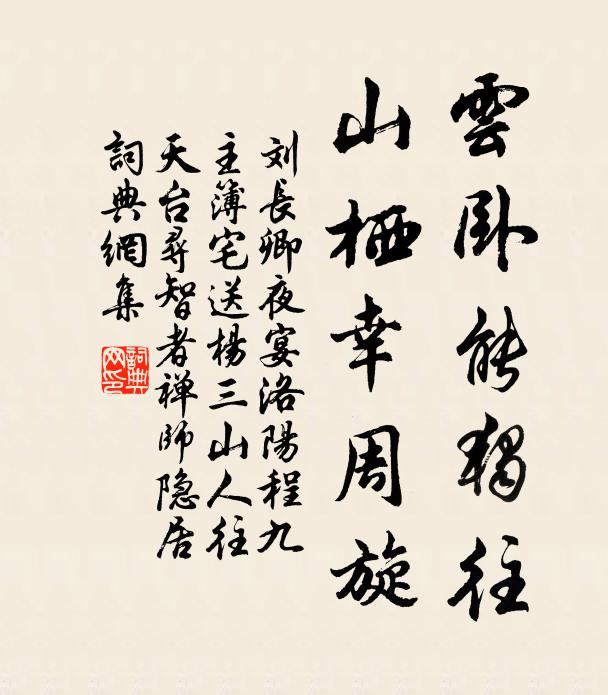 雲臥能獨往
山栖幸周旋
刘長卿夜宴洛陽程九
主簿宅送楊三山人往
天台尋智者禅師隐居
詞典網集
詞典网印